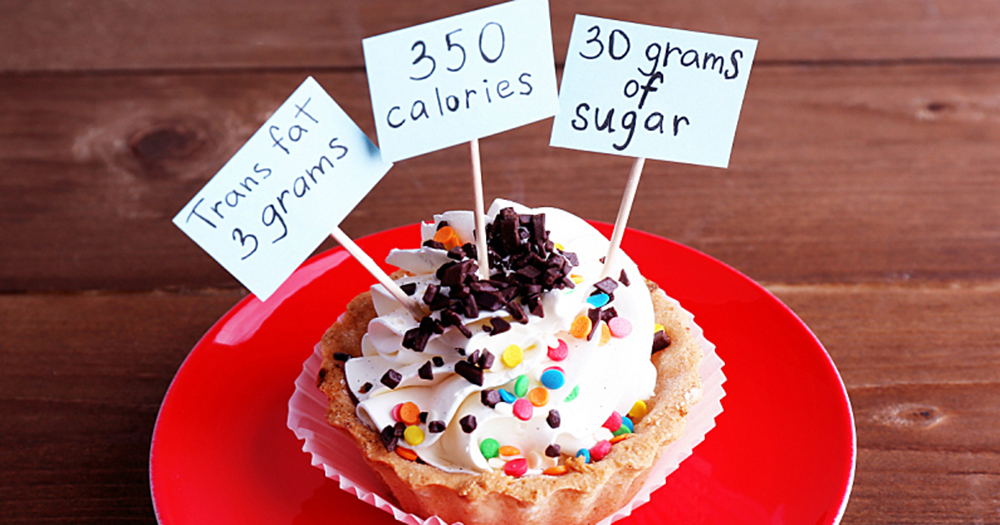 Trans fat
3 grams
350
calories
30 grams
of
sugar